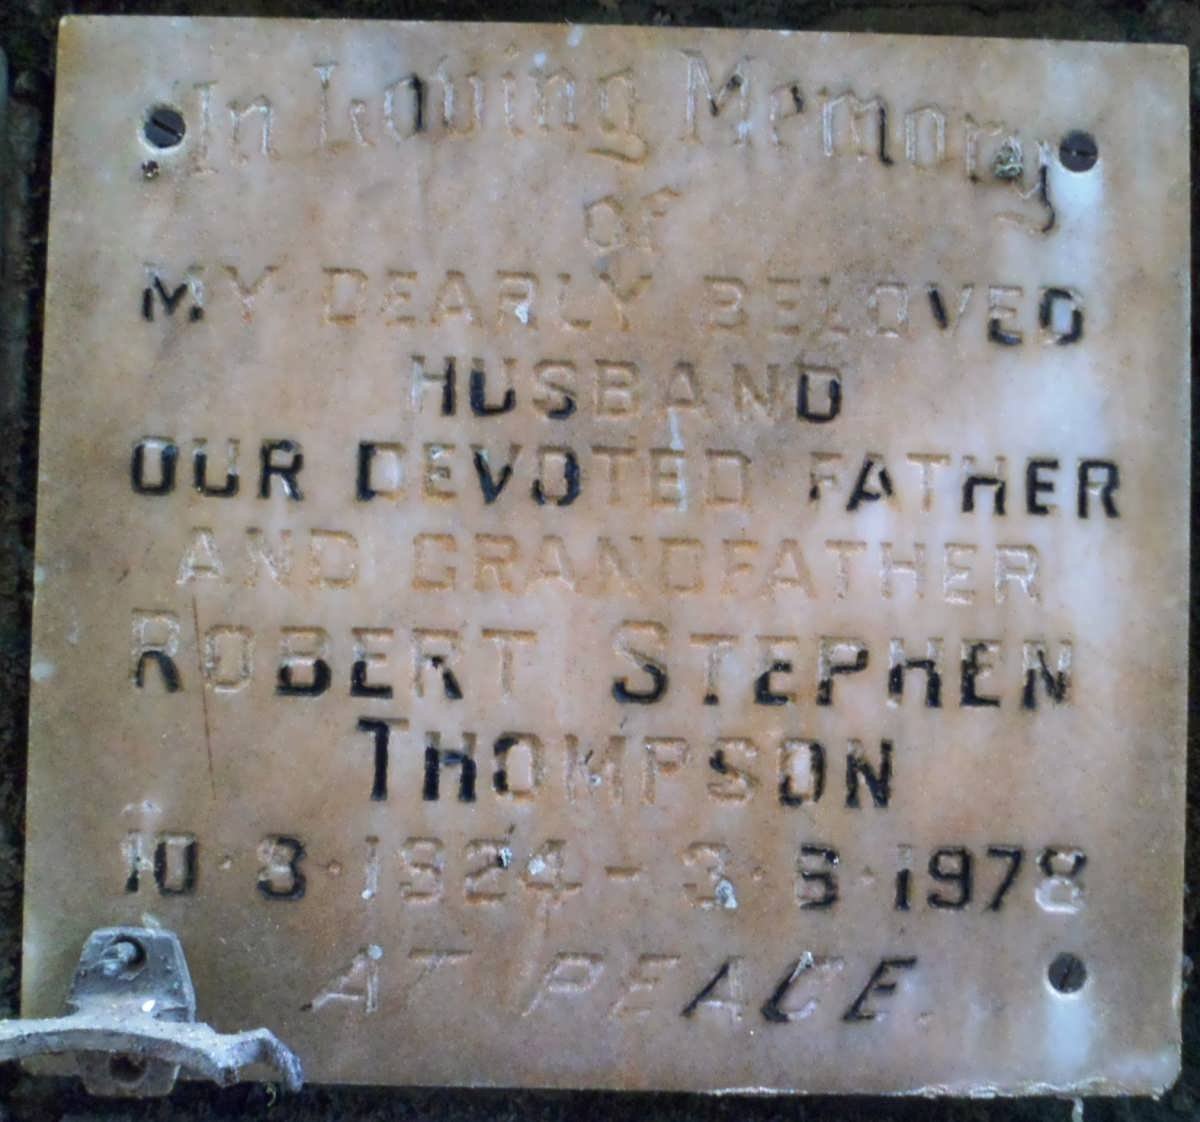 In Loving Memory
of
MY DEARLY BELOVED
HUSBAND
OUR DEVOTED FATHER
AND GRANDFATHER
ROBERT STEPHEN
THOMPSON
10·8·1924 – 3·6·1978
AT PEACE.